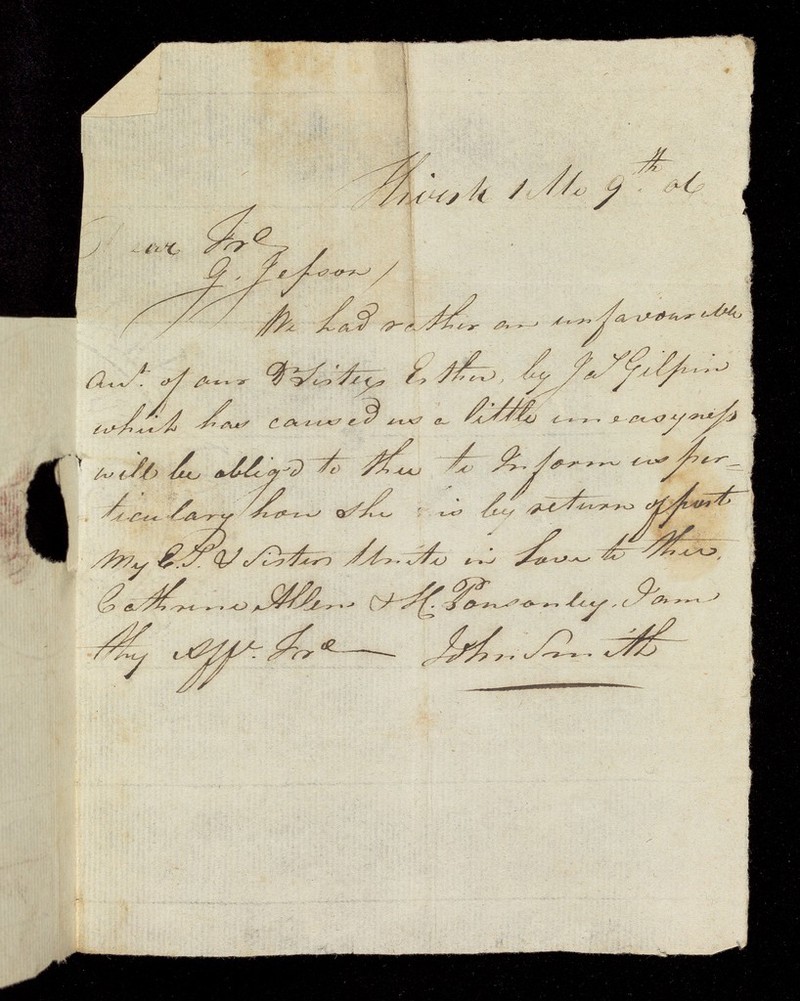 Thirsk 1 Mo 9th. 06
Dear Frd
G. Jepson /
We had rather an unfavourable
acct. of our Dr Sister Esther, by Jas Gilpin
which has caused us a little uneasyness
will be oblig'd to thee to Inform us per=
ticulary how she is by return of post
My E.P. & Sisters Unite in Love to thee,
Cathrine Allen & H. Ponsonby. I am
thy Afft. Frd John Smith